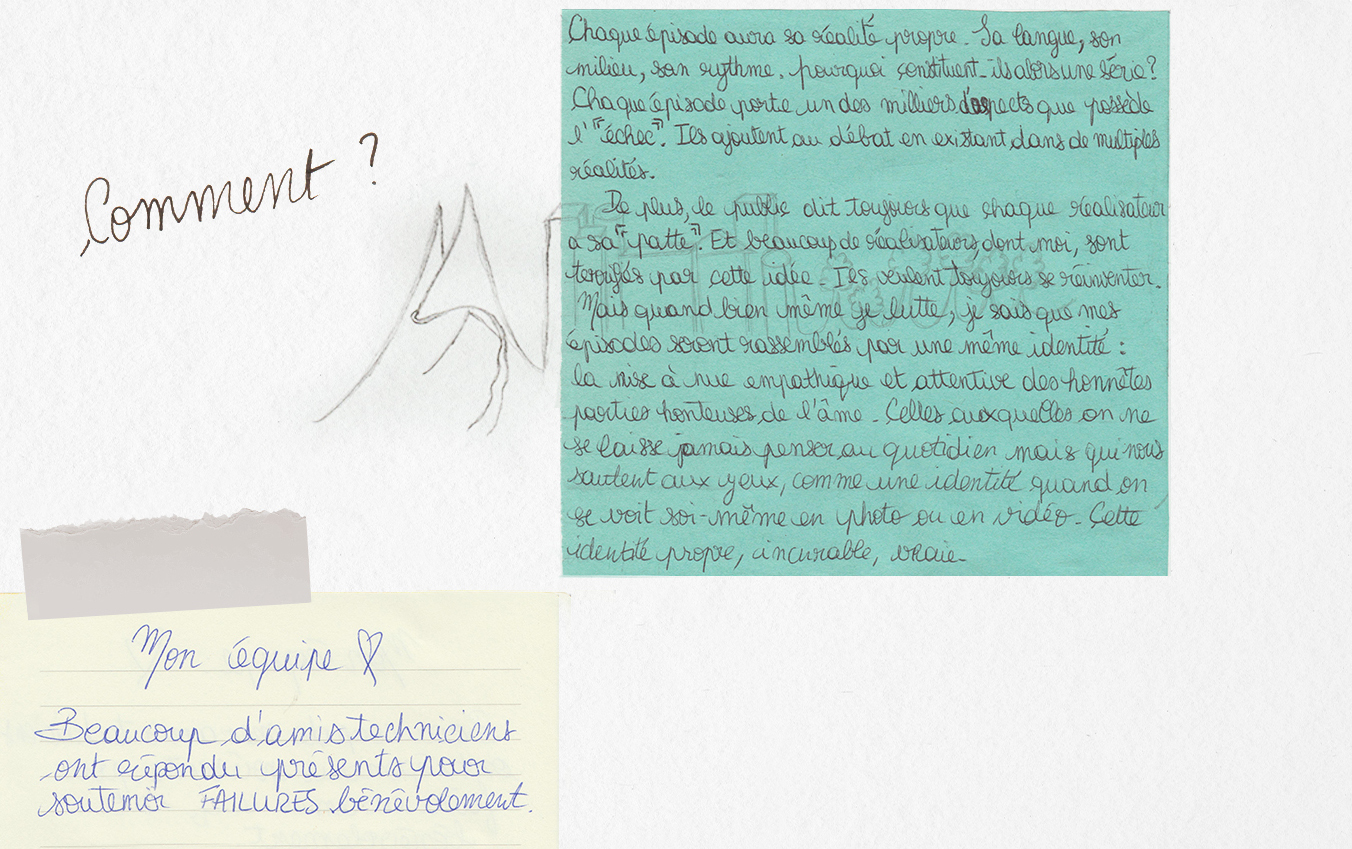 Comment ?
Chaque épisode aura sa réalité propre. Sa langue, son
milieu, son rythme. pourquoi constituent-ils alors une série?
Chaque épisode porte un des milliers d'aspects que possède
l'"échec". Ils ajoutent au débat en existant dans de multiples
réalités.
De plus, le public dit toujours que chaque réalisateur
a sa "patte". Et beaucoup de réalisateurs, dont moi, sont
terrifiés par cette idée. Ils veulent toujours se réinventer.
Mais quand bien même je lutte, je sais que mes
épisodes seront rassemblés par une même identité :
la mise à nue empathique et attentive des honnêtes
parties honteuses de l'âme. Celles auxquelles on ne
se laisse jamais penser au quotidien mais qui nous
sautent aux yeux, comme une identité quand on
se voit soi-même en photo ou en vidéo. Cette
identité propre, incurable, vraie.
Mon équipe
Beaucoup d'amis techniciens
ont répondu présents pour
soutenir FAILURES bénévolement.